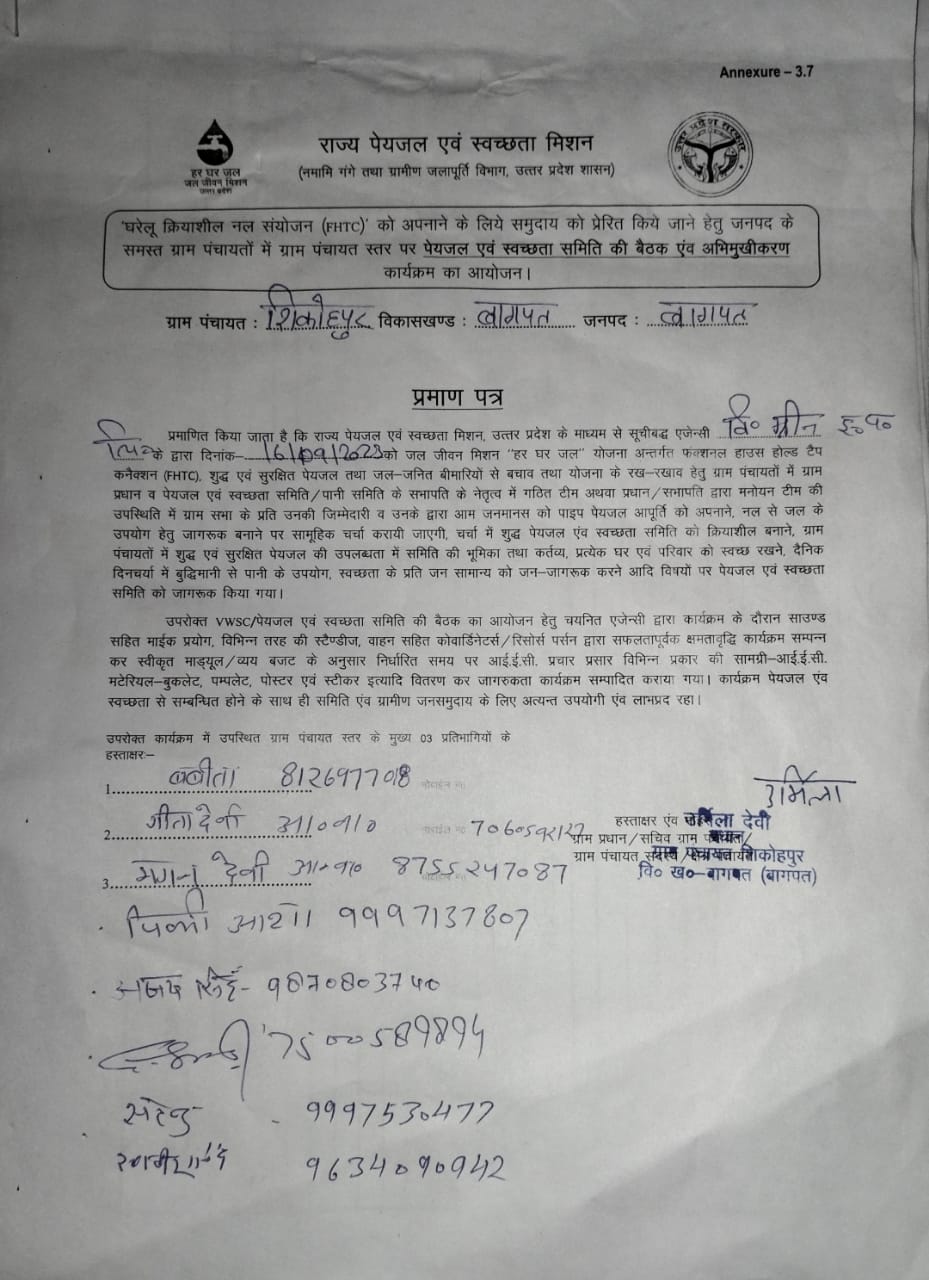 Annexure – 3.7
हर घर जल
जल जीवन मिशन
उत्तर प्रदेश
राज्य पेयजल एवं स्वच्छता मिशन
(नमामि गंगे तथा ग्रामीण जलापूर्ति विभाग, उत्तर प्रदेश शासन)
उत्तर प्रदेश सरकार
'घरेलू क्रियाशील नल संयोजन (FHTC)' को अपनाने के लिये समुदाय को प्रेरित किये जाने हेतु जनपद के
समस्त ग्राम पंचायतों में ग्राम पंचायत स्तर पर पेयजल एवं स्वच्छता समिति की बैठक एंव अभिमुखीकरण
कार्यक्रम का आयोजन।
ग्राम पंचायत : शिकोहपुर विकासखण्ड : बागपत जनपद : बागपत
प्रमाण पत्र
प्रमाणित किया जाता है कि राज्य पेयजल एवं स्वच्छता मिशन, उत्तर प्रदेश के माध्यम से सूचीबद्ध एजेन्सी वि० ग्रीन
के द्वारा दिनांक- 16/09/2023 को जल जीवन मिशन "हर घर जल" योजना अन्तर्गत फंक्शनल हाउस होल्ड टैप
कनैक्शन (FHTC), शुद्ध एवं सुरक्षित पेयजल तथा जल-जनित बीमारियों से बचाव तथा योजना के रख-रखाव हेतु ग्राम पंचायतों में ग्राम
प्रधान व पेयजल एवं स्वच्छता समिति/पानी समिति के सभापति के नेतृत्व में गठित टीम अथवा प्रधान/सभापति द्वारा मनोयन टीम की
उपस्थिति में ग्राम सभा के प्रति उनकी जिम्मेदारी व उनके द्वारा आम जनमानस को पाइप पेयजल आपूर्ति को अपनाने, नल से जल के
उपयोग हेतु जागरूक बनाने पर सामूहिक चर्चा करायी जाएगी, चर्चा में शुद्ध पेयजल एंव स्वच्छता समिति को क्रियाशील बनाने, ग्राम
पंचायतों में शुद्ध एवं सुरक्षित पेयजल की उपलब्धता में समिति की भूमिका तथा कर्तव्य, प्रत्येक घर एवं परिवार को स्वच्छ रखने, दैनिक
दिनचर्या में बुद्धिमानी से पानी के उपयोग, स्वच्छता के प्रति जन सामान्य को जन-जागरूक करने आदि विषयों पर पेयजल एवं स्वच्छता
समिति को जागरूक किया गया।
उपरोक्त VWSC/पेयजल एवं स्वच्छता समिति की बैठक का आयोजन हेतु चयनित एजेन्सी द्वारा कार्यक्रम के दौरान साउण्ड
सहित माईक प्रयोग, विभिन्न तरह की स्टैण्डीज, वाहन सहित कोवार्डिनेटर्स/रिसोर्स पर्सन द्वारा सफलतापूर्वक क्षमतावृद्धि कार्यक्रम सम्पन्न
कर स्वीकृत माड्यूल/व्यय बजट के अनुसार निर्धारित समय पर आई.ई.सी. प्रचार प्रसार विभिन्न प्रकार की सामग्री-आई.ई.सी.
मटेरियल-बुकलेट, पम्पलेट, पोस्टर एवं स्टीकर इत्यादि वितरण कर जागरुकता कार्यक्रम सम्पादित कराया गया। कार्यक्रम पेयजल एंव
स्वच्छता से सम्बन्धित होने के साथ ही समिति एंव ग्रामीण जनसमुदाय के लिए अत्यन्त उपयोगी एंव लाभप्रद रहा।
उपरोक्त कार्यक्रम में उपस्थित ग्राम पंचायत स्तर के मुख्य 03 प्रतिभागियों के
हस्ताक्षर:-
1. बबीता 8126977018
उर्मिला
2. गीता देवी आ०वा०
हस्ताक्षर एंव उर्मिला देवी
ग्राम प्रधान/सचिव ग्राम पंचायत/
3. देवी आ०वा० 8755247087
ग्राम पंचायत शिकोहपुर
वि० ख०-बागपत (बागपत)
पिंकी आशा 9997137807
अजय सिंह- 9870803740
7500589894
9997530477
9634090942